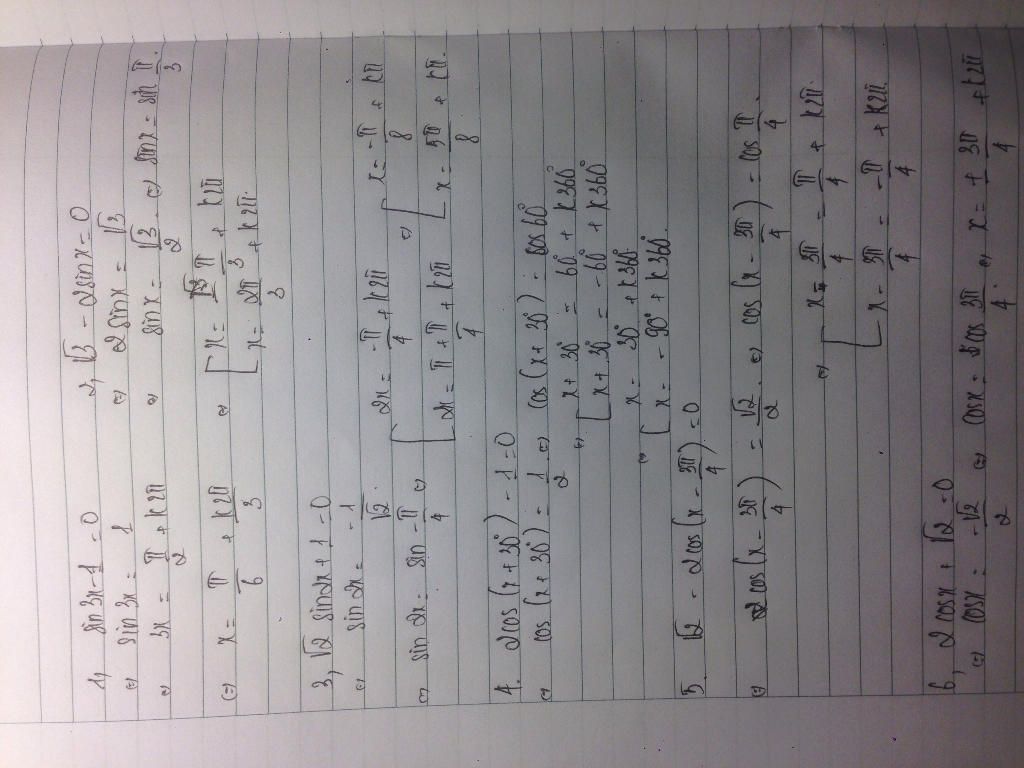 1, sin 3x - 1 = 0
⇔ sin 3x = 1
⇔ 3x = π/2 + k2π
⇔ x = π/6 + k2π/3
2, √3 - 2sin x = 0
⇔ 2sin x = √3
⇔ sin x = √3/2 ⇔ sin x = sin π/3
⇔ [ x = π/3 + k2π
x = 2π/3 + k2π.
3, √2 sin 2x + 1 = 0
⇔ sin 2x = -1/√2
⇔ sin 2x = sin -π/4 ⇔ [ 2x = -π/4 + k2π ⇔ [ x = -π/8 + kπ
2x = π + π/4 + k2π x = 5π/8 + kπ.
4. 2cos(x + 30°) - 1 = 0
⇔ cos(x + 30°) = 1/2 ⇔ cos(x + 30°) = cos 60°
⇔ [ x + 30° = 60° + k360°
x + 30° = -60° + k360°
⇔ [ x = 30° + k360°
x = -90° + k360°.
5. √2 - 2cos(x - 3π/4) = 0
⇔ cos(x - 3π/4) = √2/2 ⇔ cos(x - 3π/4) = cos π/4
⇔ [ x - 3π/4 = π/4 + k2π
x - 3π/4 = -π/4 + k2π.
6, 2cos x + √2 = 0
⇔ cos x = -√2/2 ⇔ cos x = cos 3π/4 ⇔ x = ± 3π/4 + k2π